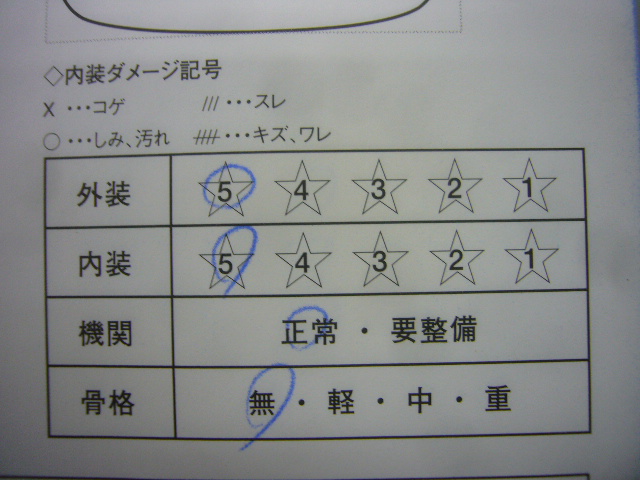 ◇内装ダメージ記号
X ・・・コゲ /// ・・・スレ
○ ・・・しみ、汚れ ⧻ ・・・キズ、ワレ
外装 5 4 3 2 1
内装 5 4 3 2 1
機関 正常 ・ 要整備
骨格 無 ・ 軽 ・ 中 ・ 重